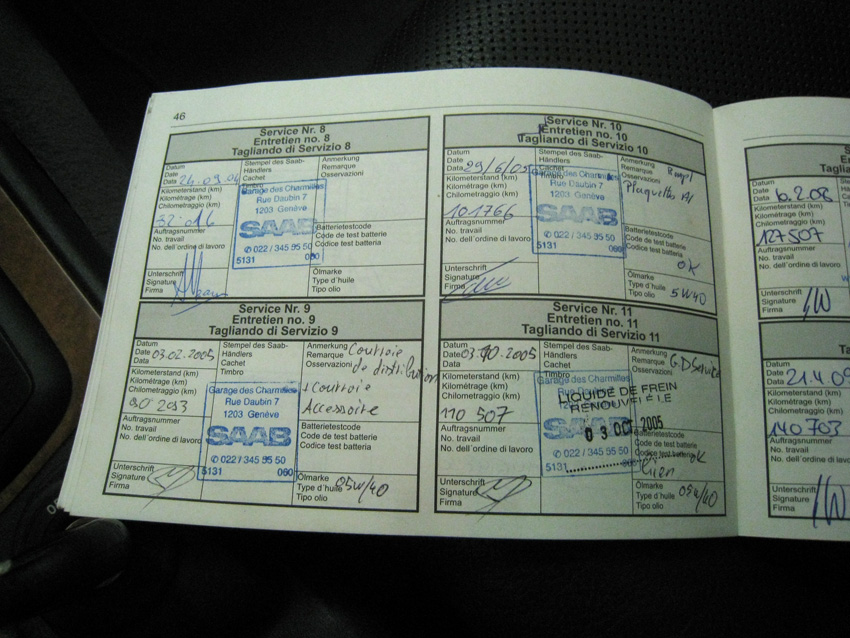 46
Service Nr. 8
Entretien no. 8
Tagliando di Servizio 8
Datum
Date
Data 24.09.04
Kilometerstand (km)
Kilométrage (km)
Chilometraggio (km)
Auftragsnummer
No. travail
No. dell'ordine di lavoro
Unterschrift
Signature
Firma
Stempel des Saab-
Händlers
Cachet
Timbro
Garage des Charmilles
Rue Daubin 7
1203 Genève
SAAB
✆ 022 / 345 95 50
5131 060
Anmerkung
Remarque
Osservazioni
Batterietestcode
Code de test batterie
Codice test batteria
Ölmarke
Type d'huile
Tipo olio
Service Nr. 9
Entretien no. 9
Tagliando di Servizio 9
Datum
Date 03.02.2005
Data
Kilometerstand (km)
Kilométrage (km)
Chilometraggio (km)
90 293
Auftragsnummer
No. travail
No. dell'ordine di lavoro
Unterschrift
Signature
Firma
Stempel des Saab-
Händlers
Cachet
Timbro
Garage des Charmilles
Rue Daubin 7
1203 Genève
SAAB
✆ 022 / 345 95 50
5131 060
Anmerkung
Remarque
Osservazioni
Courroie
de distribution
+ Courroie
Accessoire
Batterietestcode
Code de test batterie
Codice test batteria
Ölmarke
Type d'huile 05W/40
Tipo olio
Service Nr. 10
Entretien no. 10
Tagliando di Servizio 10
Datum
Date
Data 29/6/05
Kilometerstand (km)
Kilométrage (km)
Chilometraggio (km)
101766
Auftragsnummer
No. travail
No. dell'ordine di lavoro
Unterschrift
Signature
Firma
Stempel des Saab-
Händlers
Cachet
Timbro
Garage des Charmilles
Rue Daubin 7
1203 Genève
SAAB
✆ 022 / 345 95 50
5131 060
Anmerkung
Remarque
Osservazioni
Plaquettes AV
Batterietestcode
Code de test batterie
Codice test batteria
OK
Ölmarke
Type d'huile
Tipo olio 5W40
Service Nr. 11
Entretien no. 11
Tagliando di Servizio 11
Datum
Date 03.10.2005
Data
Kilometerstand (km)
Kilométrage (km)
Chilometraggio (km)
110 507
Auftragsnummer
No. travail
No. dell'ordine di lavoro
Unterschrift
Signature
Firma
Stempel des Saab-
Händlers
Cachet
Timbro
Garage des Charmilles
Rue Daubin 7
1203 Genève
SAAB
✆ 022 / 345 95 50
5131 060
LIQUIDE DE FREIN
RENOUVELÉ LE
03 OCT 2005
Anmerkung
Remarque
Osservazioni
G.D Service
Batterietestcode
Code de test batterie
Codice test batteria
ok
Ölmarke
Type d'huile 05W/40
Tipo olio
Datum
Date
Data
Kilometerstand (km)
Kilométrage (km)
Chilometraggio (km)
127507
Auftragsnummer
No. travail
No. dell'ordine di lavoro
Unterschrift
Signature
Firma
Datum
Date
Data 21.4.09
Kilometerstand (km)
Kilométrage (km)
Chilometraggio (km)
140703
Auftragsnummer
No. travail
No. dell'ordine di lavoro
Unterschrift
Signature
Firma